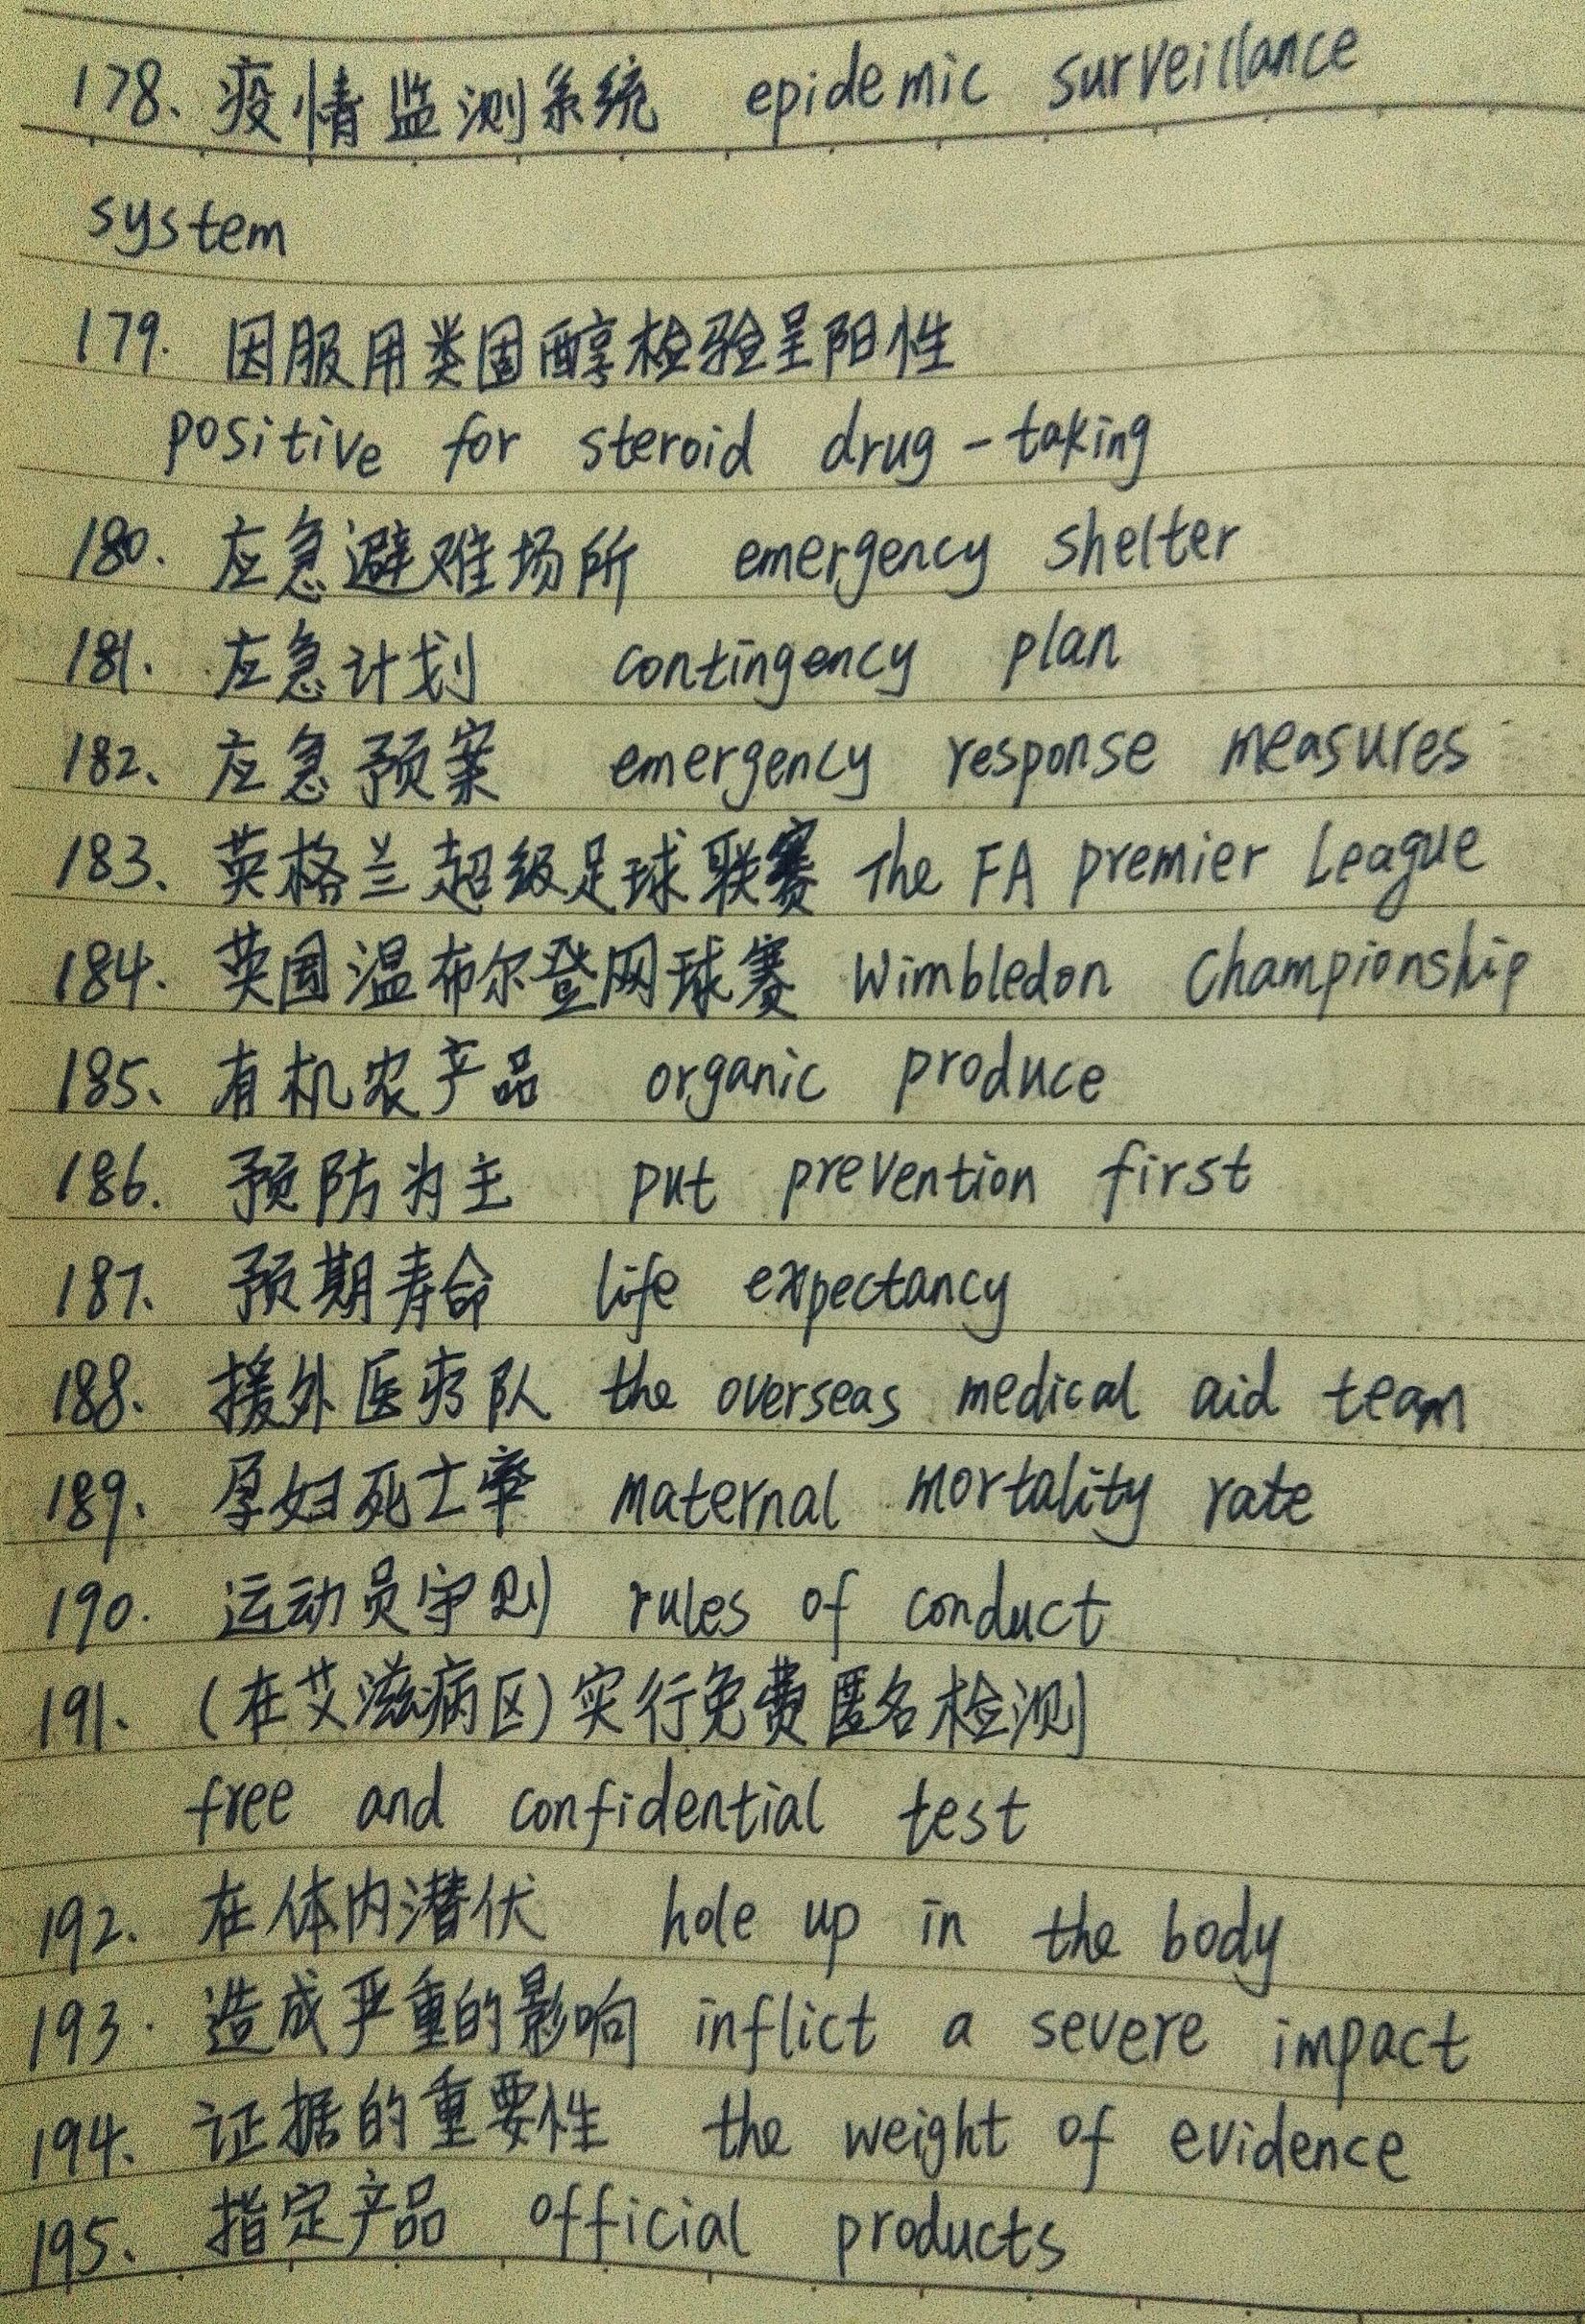 178、疫情监测系统 epidemic surveillance
system
179. 因服用类固醇检验呈阳性
positive for steroid drug-taking
180. 应急避难场所 emergency shelter
181. 应急计划 contingency plan
182、应急预案 emergency response measures
183、英格兰超级足球联赛 The FA premier League
184. 英国温布尔登网球赛 Wimbledon Championship
185、有机农产品 organic produce
186. 预防为主 put prevention first
187. 预期寿命 life expectancy
188. 援外医疗队 the overseas medical aid team
189. 孕妇死亡率 maternal mortality rate
190. 运动员守则 rules of conduct
191. (在艾滋病区)实行免费匿名检测
free and confidential test
192. 在体内潜伏 hole up in the body
193. 造成严重的影响 inflict a severe impact
194. 证据的重要性 the weight of evidence
195、指定产品 official products